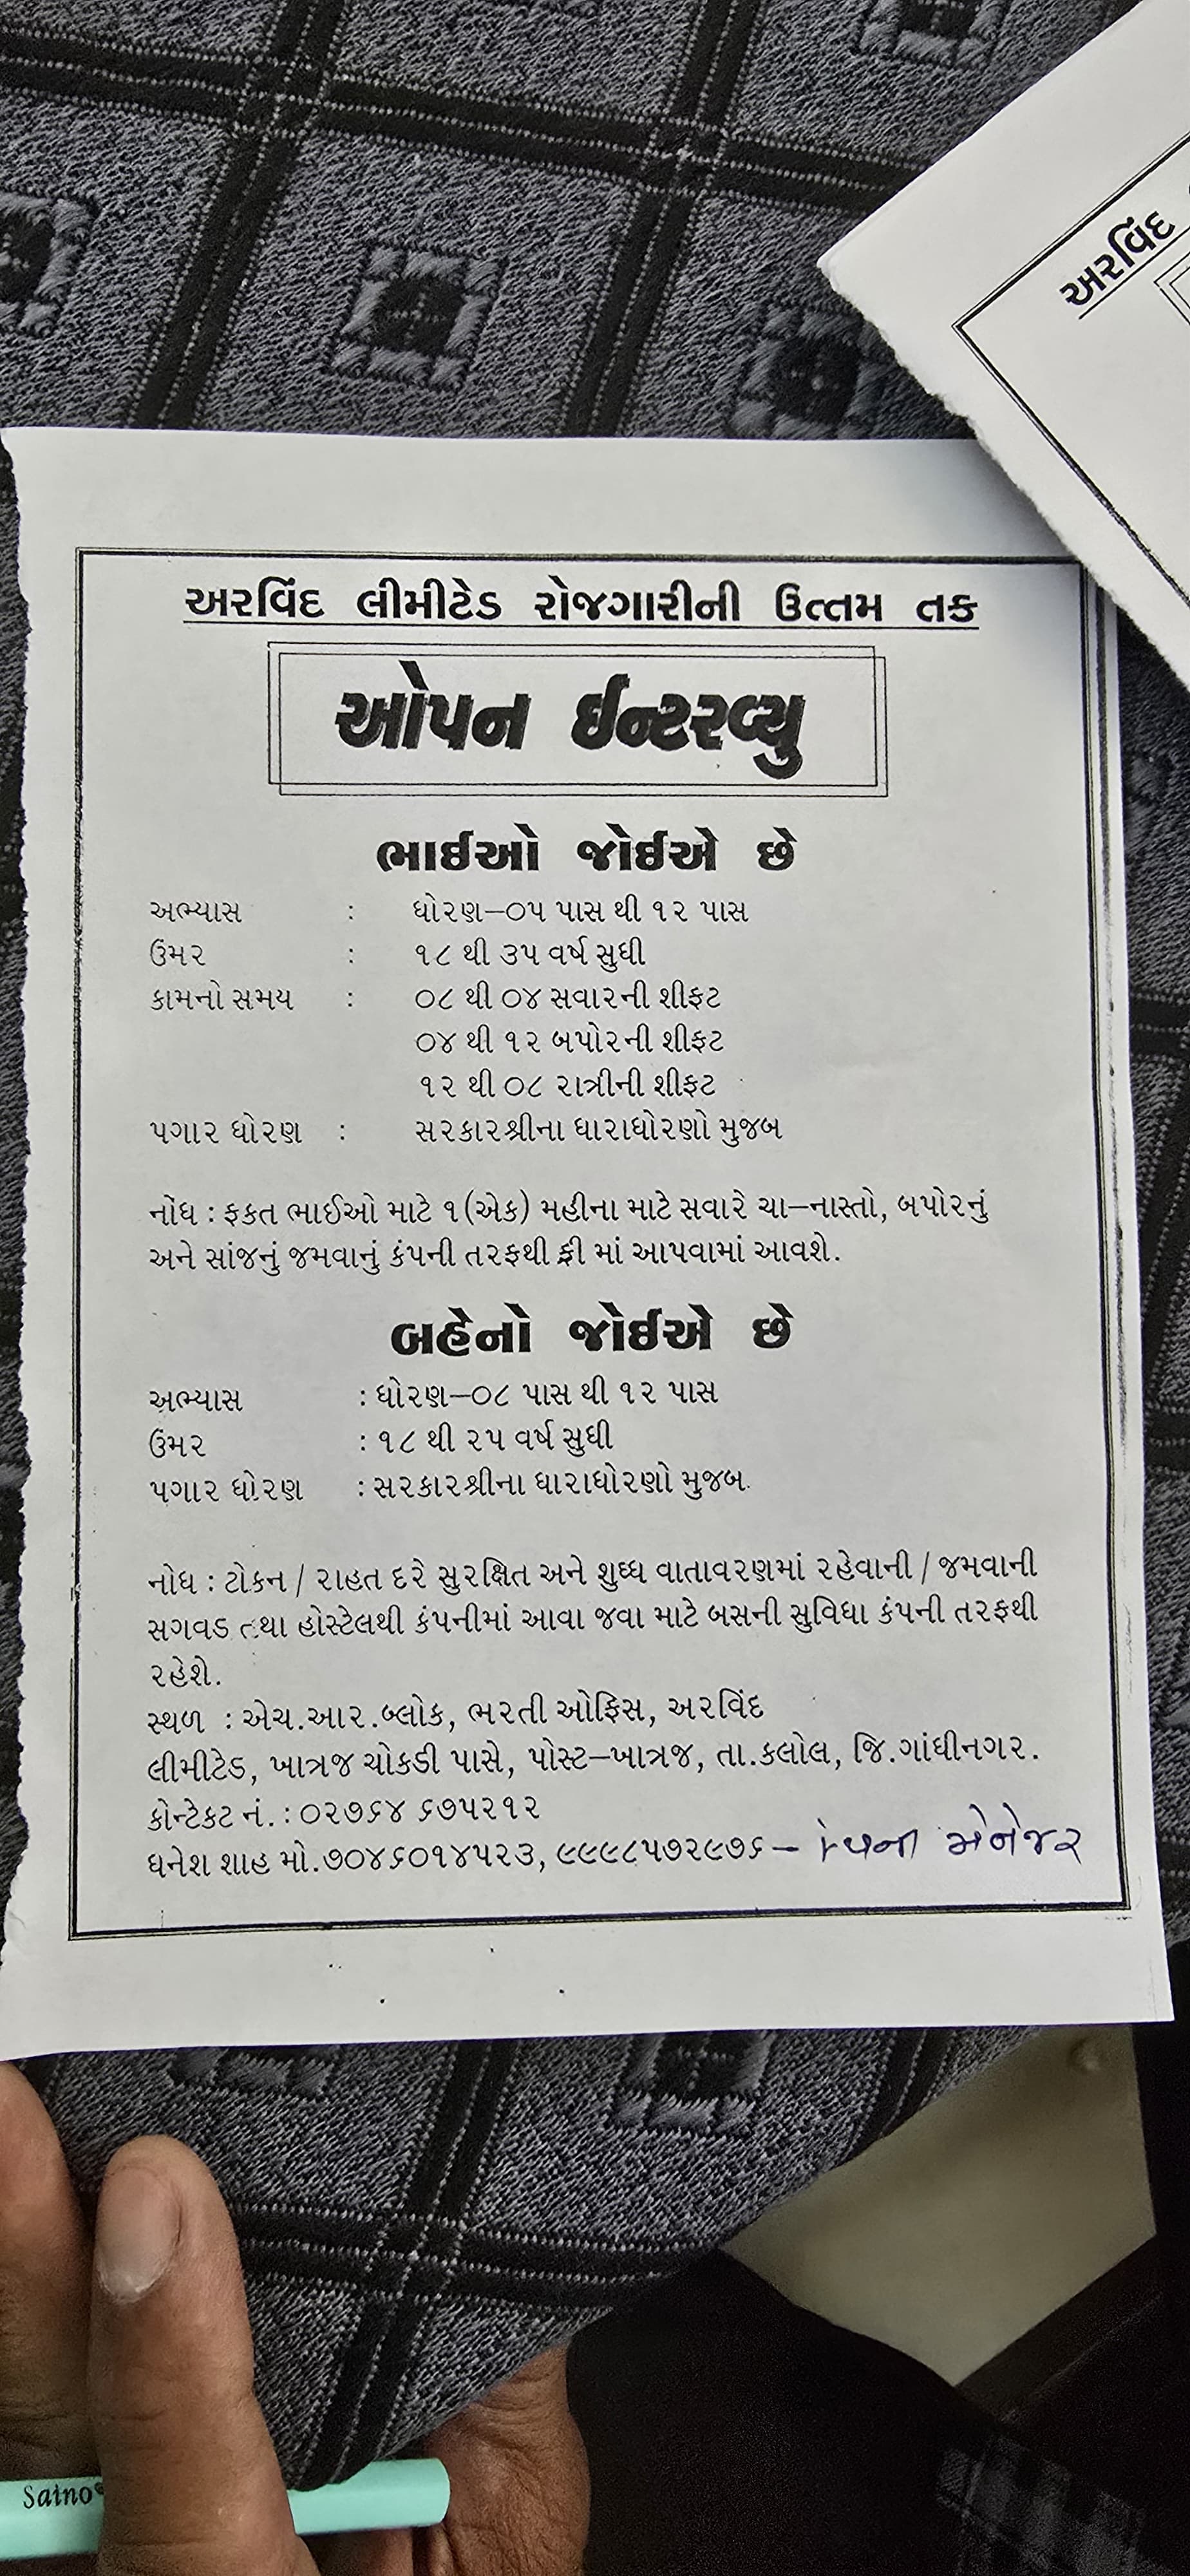 અરવિંદ
અરવિંદ લીમીટેડ રોજગારીની ઉત્તમ તક
ઓપન ઈન્ટરવ્યુ
ભાઈઓ જોઈએ છે
અભ્યાસ : ધોરણ–૦૫ પાસ થી ૧૨ પાસ
ઉંમર : ૧૮ થી ૩૫ વર્ષ સુધી
કામનો સમય : ૦૮ થી ૦૪ સવારની શીફટ
૦૪ થી ૧૨ બપોરની શીફટ
૧૨ થી ૦૮ રાત્રીની શીફટ
પગાર ધોરણ : સરકારશ્રીના ધારાધોરણો મુજબ
નોંધ : ફકત ભાઈઓ માટે ૧ (એક) મહીના માટે સવારે ચા–નાસ્તો, બપોરનું
અને સાંજનું જમવાનું કંપની તરફથી ફ્રી માં આપવામાં આવશે.
બહેનો જોઈએ છે
અભ્યાસ : ધોરણ–૦૮ પાસ થી ૧૨ પાસ
ઉંમર : ૧૮ થી ૨૫ વર્ષ સુધી
પગાર ધોરણ : સરકારશ્રીના ધારાધોરણો મુજબ
નોંધ : ટોકન / રાહત દરે સુરક્ષિત અને શુધ્ધ વાતાવરણમાં રહેવાની / જમવાની
સગવડ તથા હોસ્ટેલથી કંપનીમાં આવા જવા માટે બસની સુવિધા કંપની તરફથી
રહેશે.
સ્થળ : એચ.આર.બ્લોક, ભરતી ઓફિસ, અરવિંદ
લીમીટેડ, ખાત્રજ ચોકડી પાસે, પોસ્ટ–ખાત્રજ, તા.કલોલ, જિ.ગાંધીનગર.
કોન્ટેકટ નં. : ૦૨૭૬૪ ૬૭૫૨૧૨
ધનેશ શાહ મો.૭૦૪૬૦૧૪૫૨૩, ૯૯૯૮૫૭૨૯૭૬ – મેનેજર